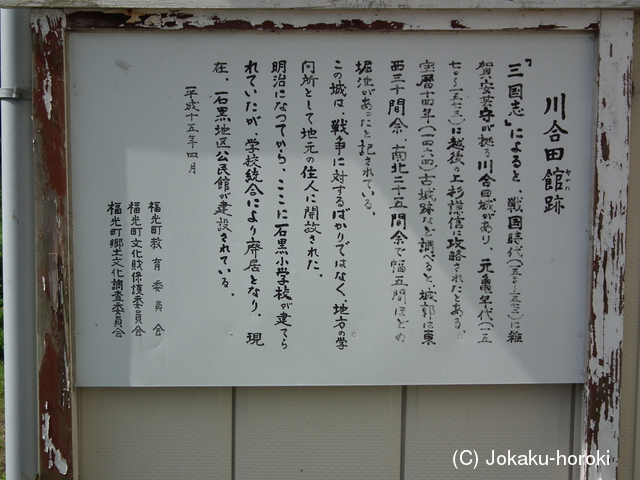 川合田館跡
かわいだ
「三国志」によると、戦国時代(一五〇〇~一五七三)に雑
賀安芸守が拠る川合田城があり、元亀年代(一五
七〇~一五七三)に越後の上杉謙信に攻略されたとある。
宝暦十四年(一七六四)古城跡など調べると、城郭は東
西三十間余、南北二十五間余で幅五間ほどの
堀注があったと記されている。
この城は、戦争に対するばかりではなく、地方の学
問所として地元の住人に開放された。
明治になってから、ここに石黒小学校が建てら
れていたが、学校統合により廃居となり、現
在、石黒地区公民館が建設されている。
平成十五年四月
福光町教育委員会
福光町文化財保護委員会
福光町郷土文化調査委員会
(C) Jokaku-horoki